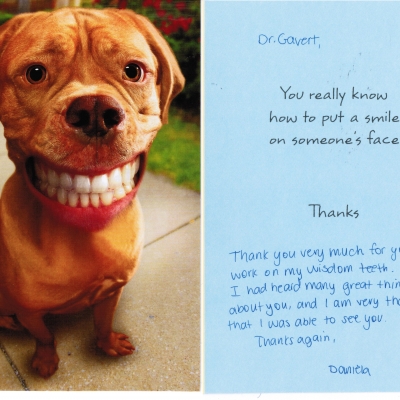 Dr. Gavert,
You really know
how to put a smile
on someone's face
Thanks
Thank you very much for
work on my wisdom teeth.
I had heard many great
about you, and I am very
that I was able to see you.
Thanks again,
Daniela